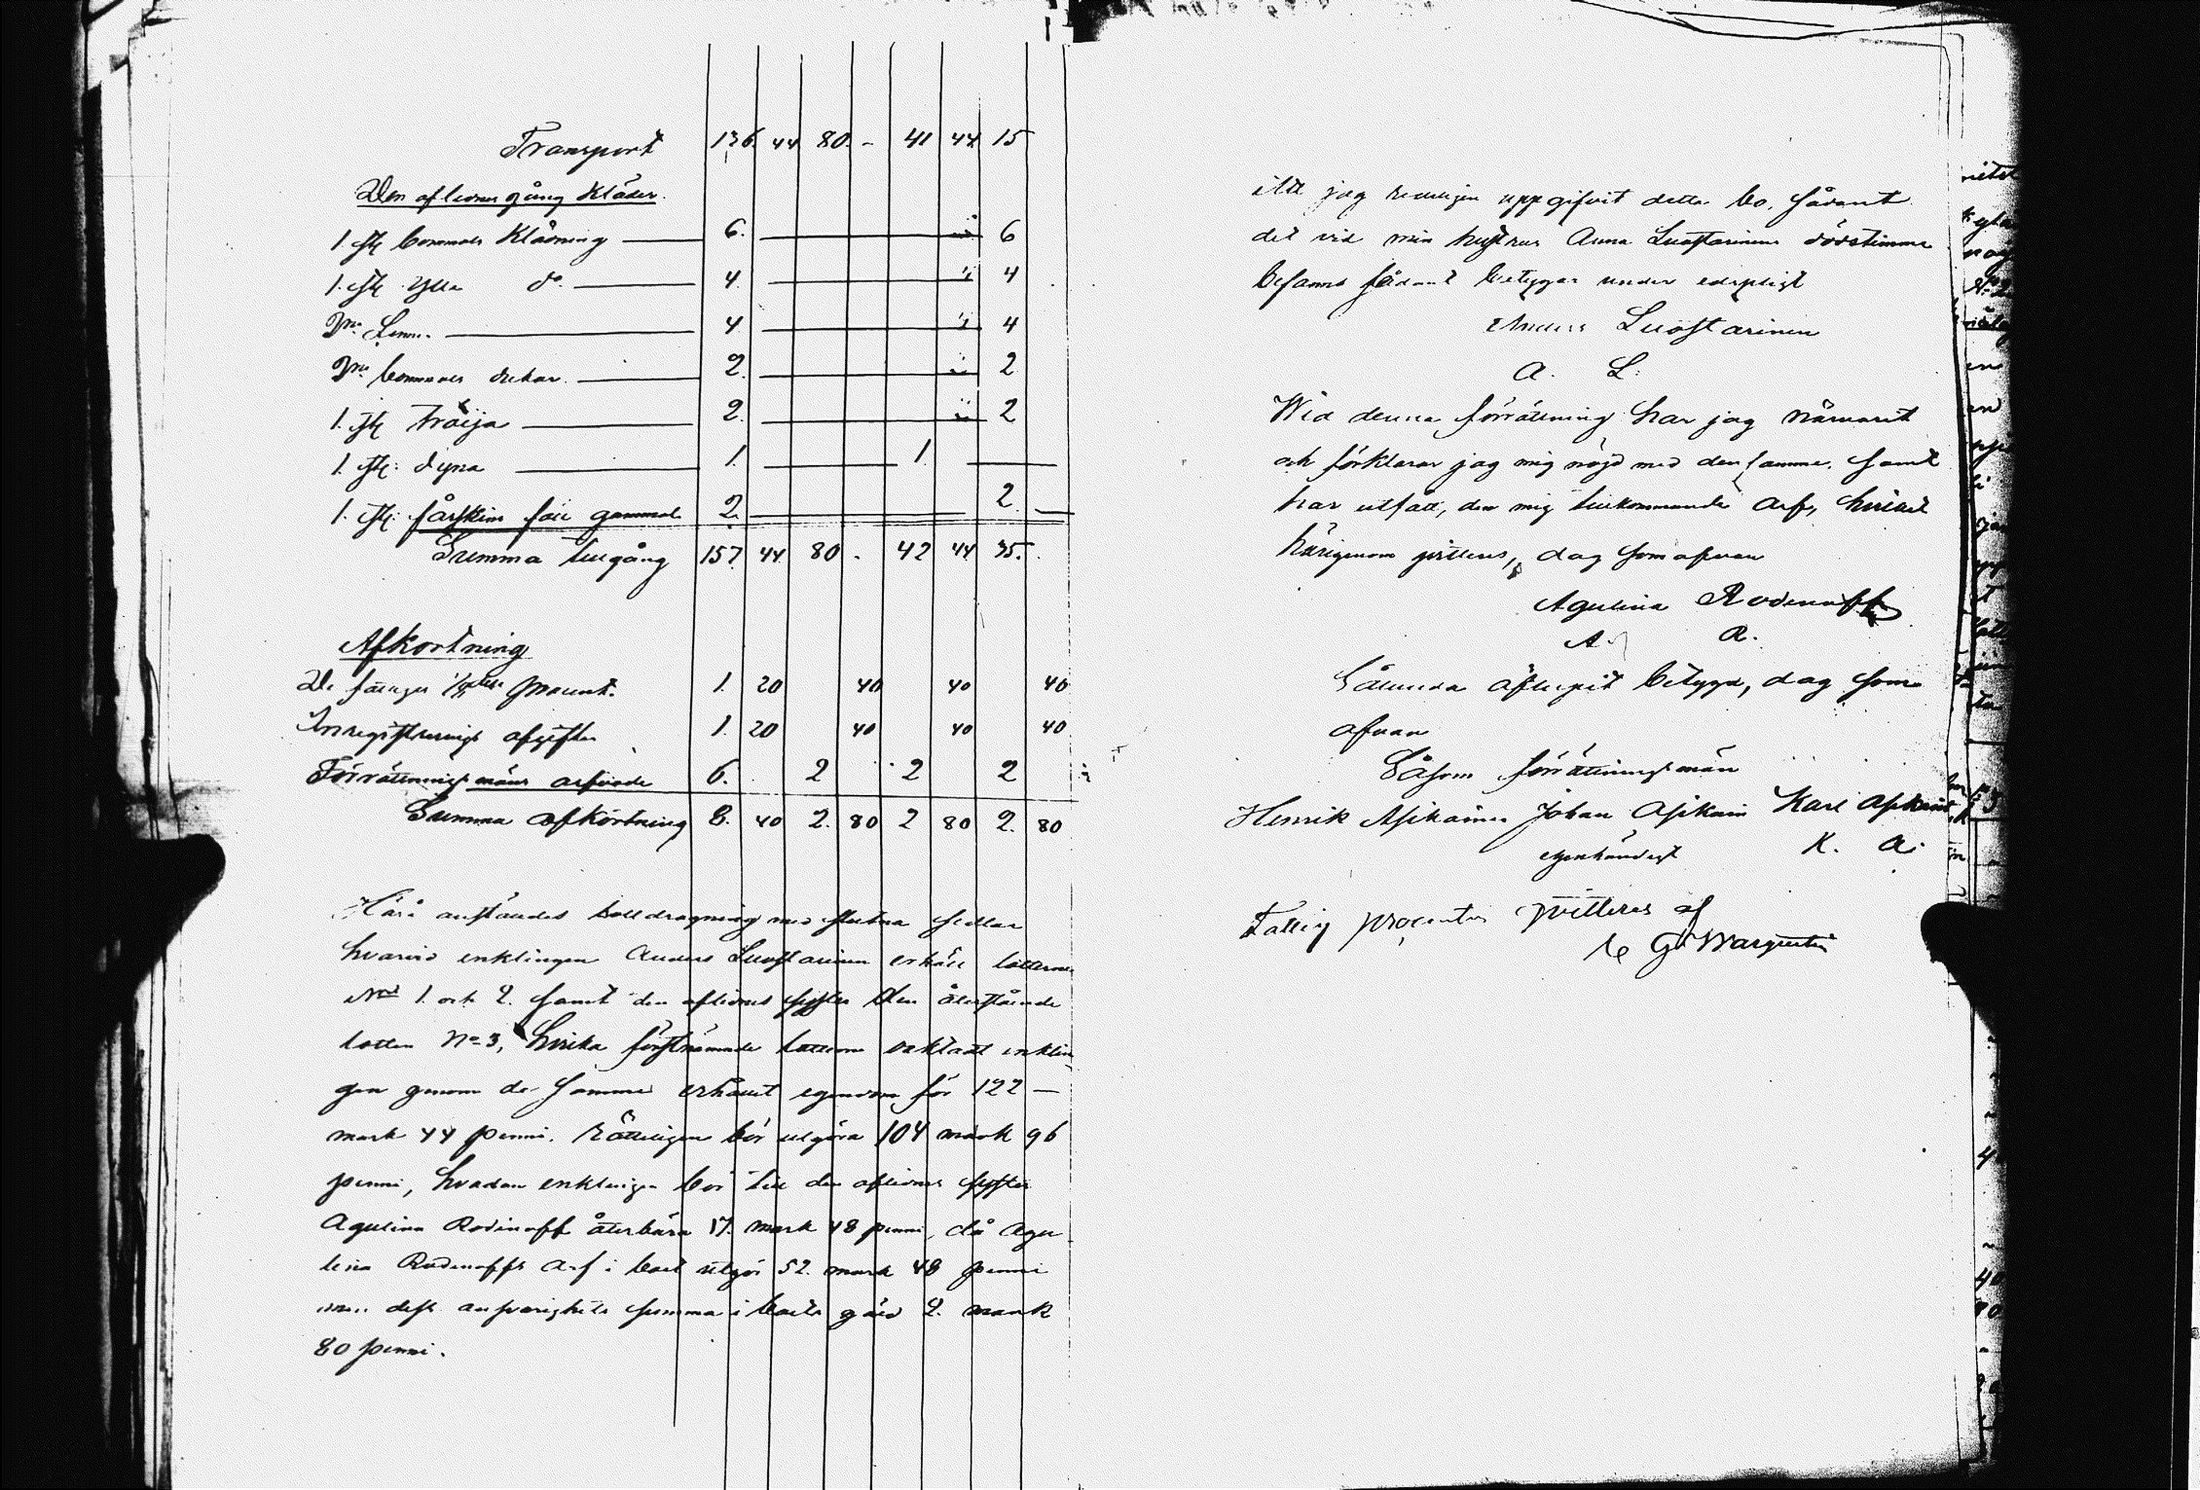 Transport 136 44 80 - 41 44 15
Den aflidnes gång kläder.
1. st bommuls Klädning 6. 6
1. st. ylle do. 4. 4
2ne Linne. 4 4
2ne bommuls dukar. 2. 2
1. st tröija 2. 2
1. st: dyna 1. 1.
1. st: fårskins fäll gammal 2. 2
Summa tillgång 157. 44 80 - 42 44 35.
Afkortning
De fattiges 1/8 procent. 1. 20 40 40 40
Inregistrerings afgifter 1. 20 40 40 40
Förrättningsmäns arfvode 6. 2 2 2
Summa afkortning 8. 40 2. 80 2 80 2. 80
Härå anstäldes lottdragning med slutna sedlar
hvarvid enklingen Anders Luostarinen erhöll lotterne
No 1. och 2. samt den aflidnes syster den återstående
lotten No 3, hvilka förstnämnde lotterne enklin
gen genom de samma erhållit egendom för 122 —
mark 44 penni. rätteligen bör utgöra 104 mark 96
penni, hvadan enklingen bör till den aflidnes syster
Agulina Rodinoff återbära 17. mark 48 penni, då Agu
lina Rodinoffs arf i boet utgör 52. mark 48 penni
men dess ansvarighets summa i boets gäld 2. mark
80 penni.
Att jag redeligen uppgifvit detta bo, sådant
det vid min hustrus Anna Luostarinens dödstimme
befanns sådant betygar under edspligt
Anders Luostarinen
A. L.
Wid denna förrättning har jag närvarit
och förklarar jag mig nöjd med den samme. samt
har utfått, den mig tillkommande arf, hvilket
härigenom qvitteras, dag som ofvan
Agulina Rodinoff
A. R.
Sålunda aflupit betyga, dag som
ofvan
Såsom förrättningsmän
Henrik Asikainen Johan Asikain Karl Asikain
egenhändigt K. A.
Fattig procenten qvitteras af